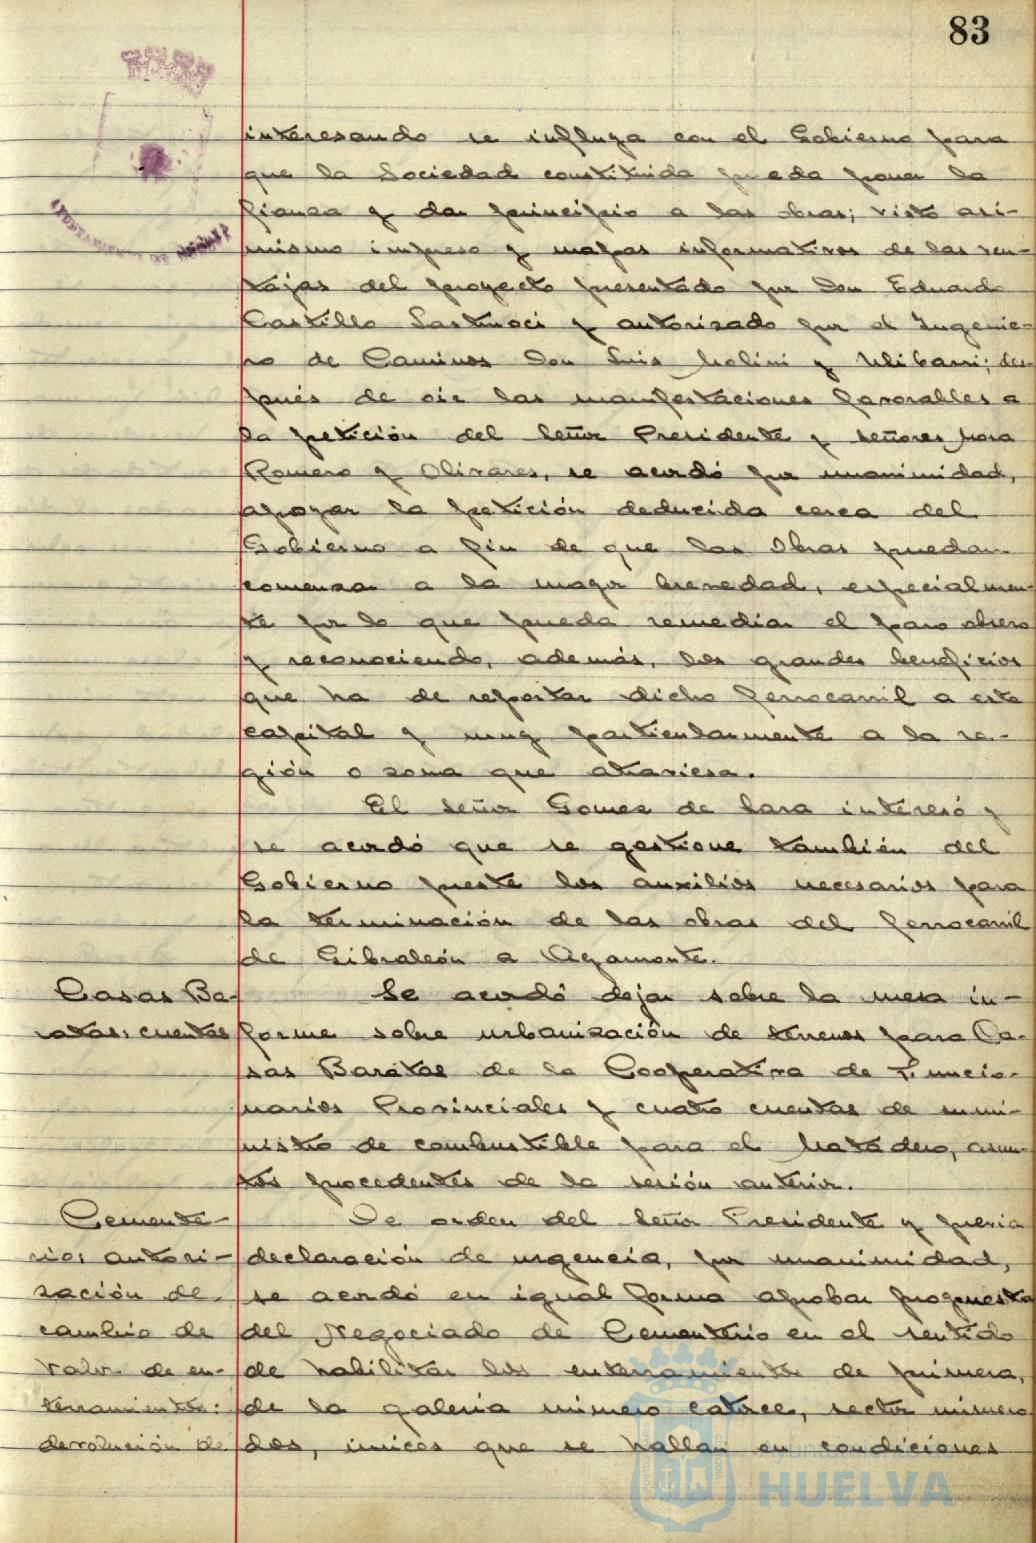 83
AYUNTAMIENTO DE HUELVA
interesando se influya con el Gobierno para
que la Sociedad constituida pueda poner la
fianza y dar principio a las obras; visto asi-
mismo impreso y mapas informativos de las ven-
tajas del proyecto presentado por Don Eduardo
Castillo y autorizado por el Ingenie-
ro de Caminos Don Luis Molini y Ulibarri; des-
pués de oir las manifestaciones favorables a
la petición del Señor Presidente y señores Mora
Romero y Olivares, se acordó por unanimidad,
apoyar la petición deducida cerca del
Gobierno a fin de que las Obras puedan
comenzar a la mayor brevedad, especialmen-
te por lo que pueda remediar el paro obrero
y reconociendo, además, los grandes beneficios
que ha de reportar dicho ferrocarril a esta
capital y muy particularmente a la re-
gión o zona que atraviesa.
El Señor Gomez de Lara interesó y
se acordó que se gestione también del
Gobierno preste los auxilios necesarios para
la terminación de las obras del ferrocarril
de Gibraleón a Ayamonte.
Casas Ba-
ratas; cuentas
Se acordó dejar sobre la mesa in-
forme sobre urbanización de terrenos para Ca-
sas Baratas de la Cooperativa de Funcio-
narios Provinciales y cuatro cuentas de sumi-
nistro de combustible para el Matadero, asun-
tos procedentes de la sesión anterior.
Cemente-
rio; autori-
zación de
cambio de
valor de en-
terramientos:
devolución de
De orden del Señor Presidente y previa
declaración de urgencia, por unanimidad,
se acordó en igual forma aprobar propuesta
del Negociado de Cementerio en el sentido
de habilitar los enterramientos de primera,
de la galeria número catorce, sector número
dos, únicos que se hallan en condiciones
Ayuntamiento de
HUELVA